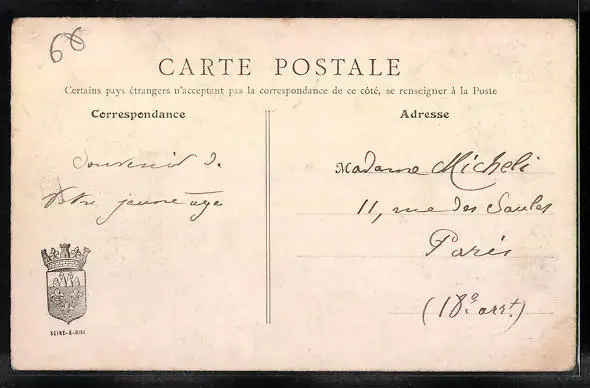 68
CARTE POSTALE
Certains pays étrangers n'acceptant pas la correspondance de ce côté, se renseigner à la Poste
Correspondance
Adresse
Souvenir de
Votre jeune âge
Madame Micheli
11, rue des Saules
Paris
(18e arrt)
SEINE-&-OISE